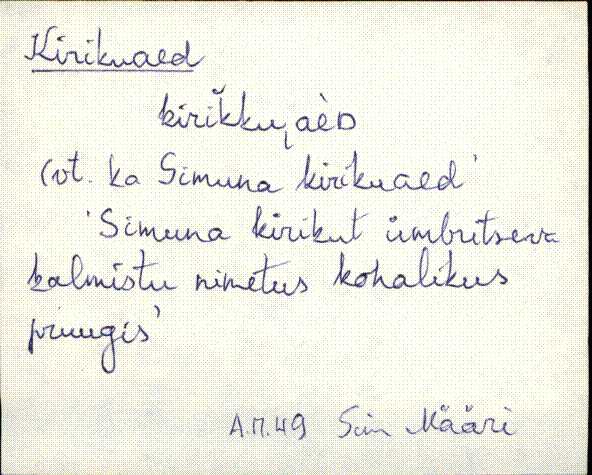 Kirikuaed
kirikku̮aèD
(vt. ka Simuna kirikuaed'
'Simuna kirikut ümbritseva
kalmistu nimetus kohalikus
pruugis'
A.П.49 Siin Määri